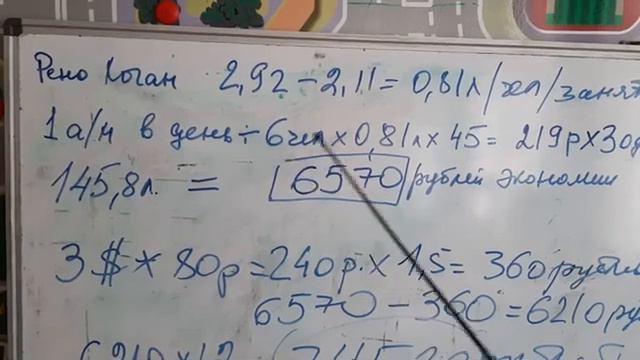 Рено Логан 2,92 - 2,11 = 0,81 л/чел/занят
1 а/м в день ÷ 6 чел × 0,81 л × 45 = 219р × 30д
145,8 л. = 6570 рублей экономии
3 $ * 80р = 240 р. × 1,5 = 360 рубл
6570 - 360 = 6210 ру
6210 × 12